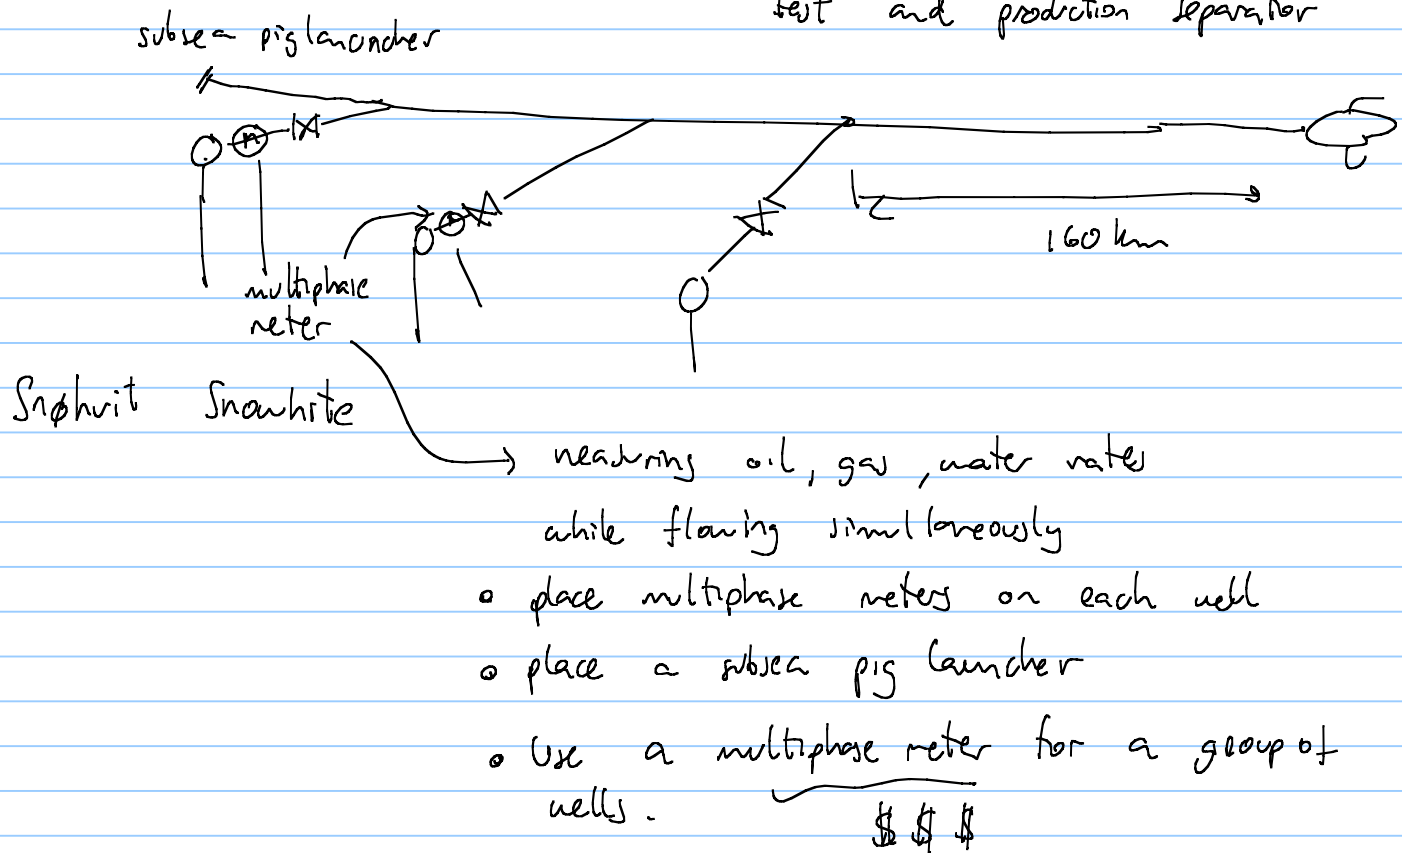 test and production separator
subsea pig launcher
160 km
multiphase
meter
Snøhvit Snowhite
measuring oil, gas, water rates
while flowing simultaneously
• place multiphase meters on each well
• place a subsea pig launcher
• Use a multiphase meter for a group of
wells.
$ $ $